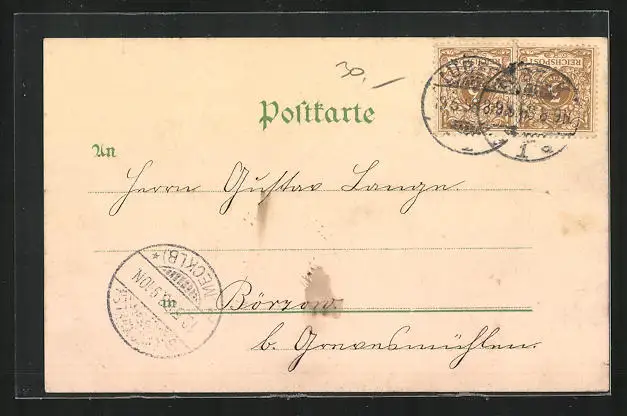 30,-
Postkarte
An
Herrn Gustav Lange
in Börzow
b. Grevesmühlen.
REICHSPOST REICHSPOST
(MECKLB) *